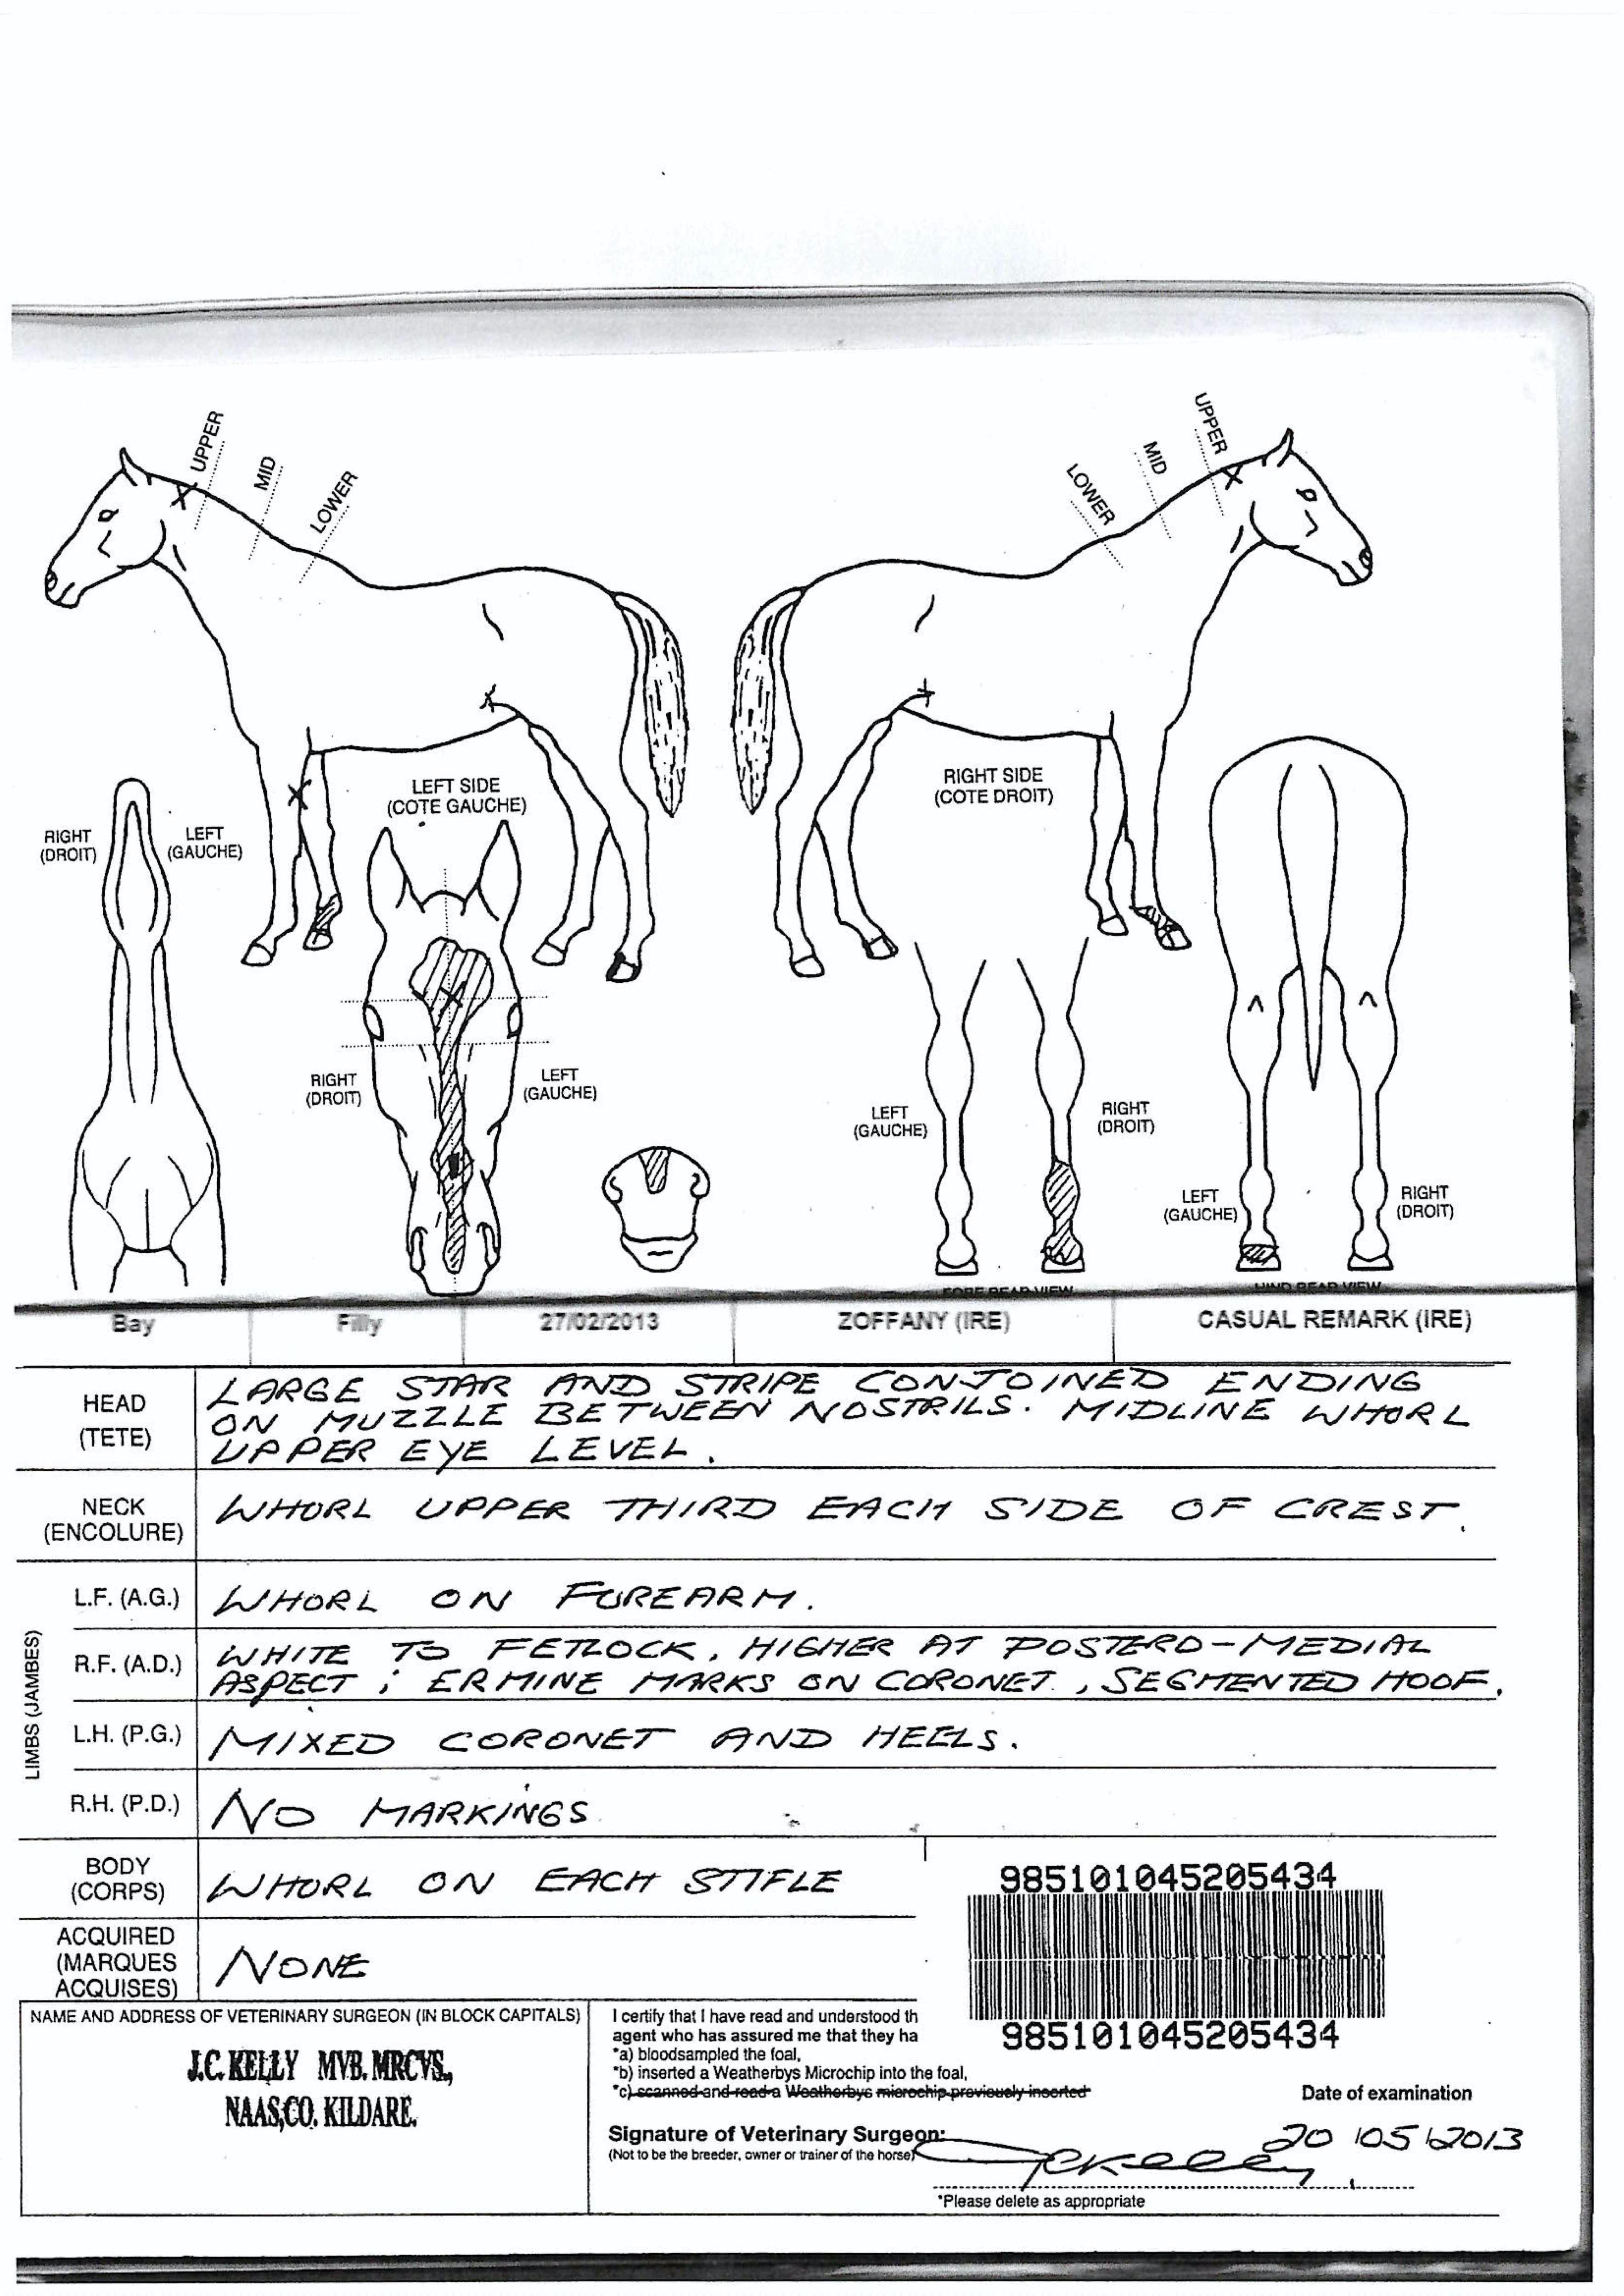 UPPER
MID
LOWER
UPPER
MID
LOWER
LEFT SIDE
(COTE GAUCHE)
RIGHT SIDE
(COTE DROIT)
RIGHT
(DROIT)
LEFT
(GAUCHE)
RIGHT
(DROIT)
LEFT
(GAUCHE)
LEFT
(GAUCHE)
RIGHT
(DROIT)
LEFT
(GAUCHE)
RIGHT
(DROIT)
FORE REAR VIEW
HIND REAR VIEW
Bay Filly 27/02/2013 ZOFFANY (IRE) CASUAL REMARK (IRE)
HEAD
(TETE)
LARGE STAR AND STRIPE CONJOINED ENDING
ON MUZZLE BETWEEN NOSTRILS. MIDLINE WHORL
UPPER EYE LEVEL.
NECK
(ENCOLURE)
WHORL UPPER THIRD EACH SIDE OF CREST.
LIMBS (JAMBES)
L.F. (A.G.) WHORL ON FOREARM.
R.F. (A.D.)
WHITE TO FETLOCK, HIGHER AT POSTERO-MEDIAL
ASPECT; ERMINE MARKS ON CORONET, SEGMENTED HOOF.
L.H. (P.G.) MIXED CORONET AND HEELS.
R.H. (P.D.) NO MARKINGS
BODY
(CORPS)
WHORL ON EACH STIFLE
985101045205434
985101045205434
ACQUIRED
(MARQUES
ACQUISES)
NONE
NAME AND ADDRESS OF VETERINARY SURGEON (IN BLOCK CAPITALS)
J.C. KELLY MVB. MRCVS.,
NAAS, CO. KILDARE.
I certify that I have read and understood th
agent who has assured me that they ha
*a) bloodsampled the foal,
*b) inserted a Weatherbys Microchip into the foal,
*c) scanned and read a Weatherbys microchip previously inserted
Date of examination
20/05/2013
Signature of Veterinary Surgeon:
(Not to be the breeder, owner or trainer of the horse)
JCKelly
*Please delete as appropriate